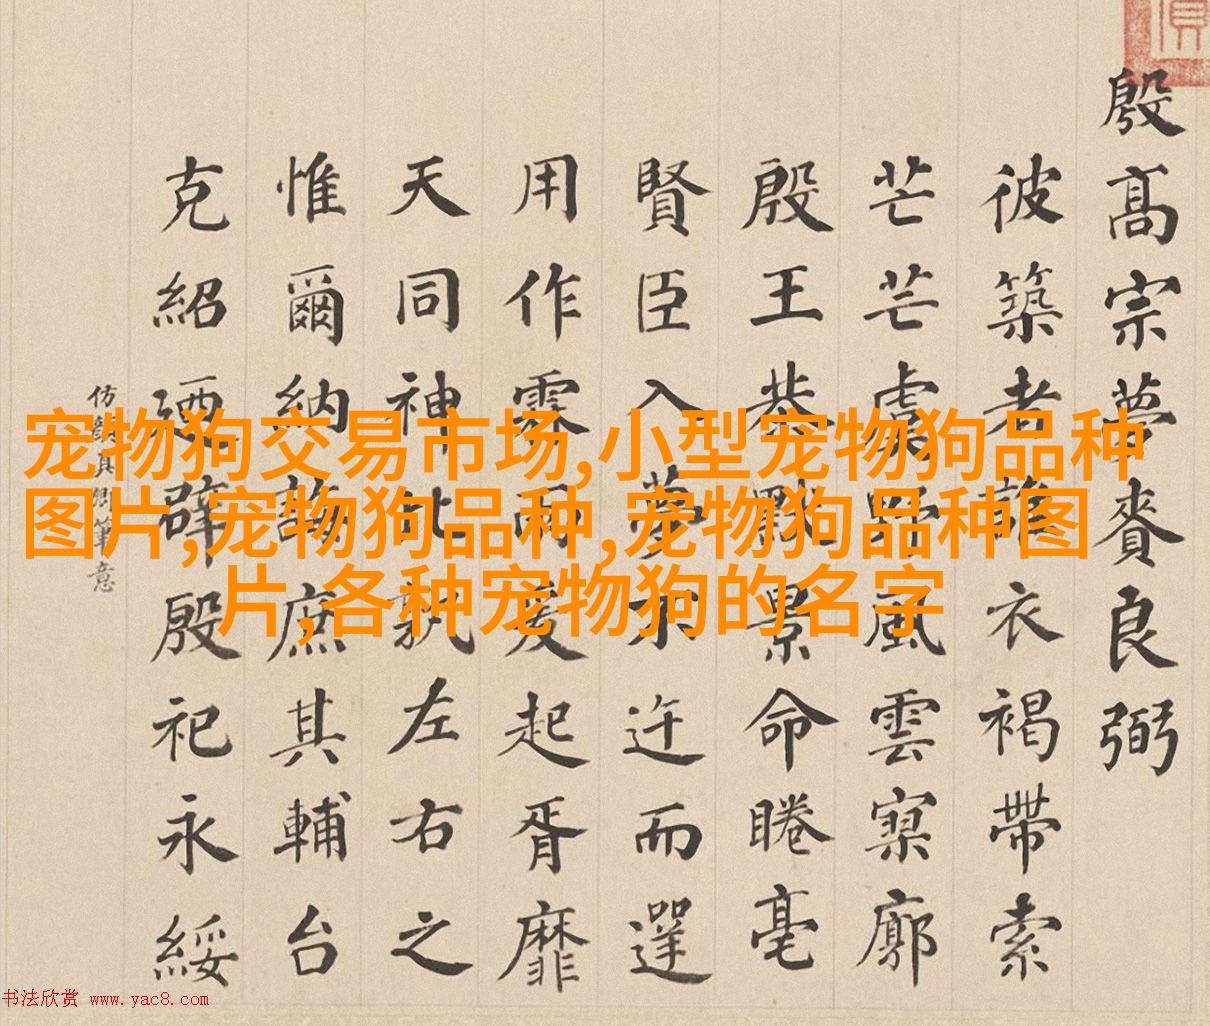 殷髙宗夢賚良弼
彼築者誰衣褐帶索
芒芒虞野風雲寥廓
殷王恭默景命睠亳
賢臣入夢不迕而遌
用作霖雨爰起胥靡
天同神比孰左右之
惟爾納誨庶其輔台
克紹迺辟殷祀永綏
仿卿筆意
宠物狗交易市场,小型宠物狗品种
图片,宠物狗品种,宠物狗品种图
片,各种宠物狗的名字
书法欣赏 www.yac8.com